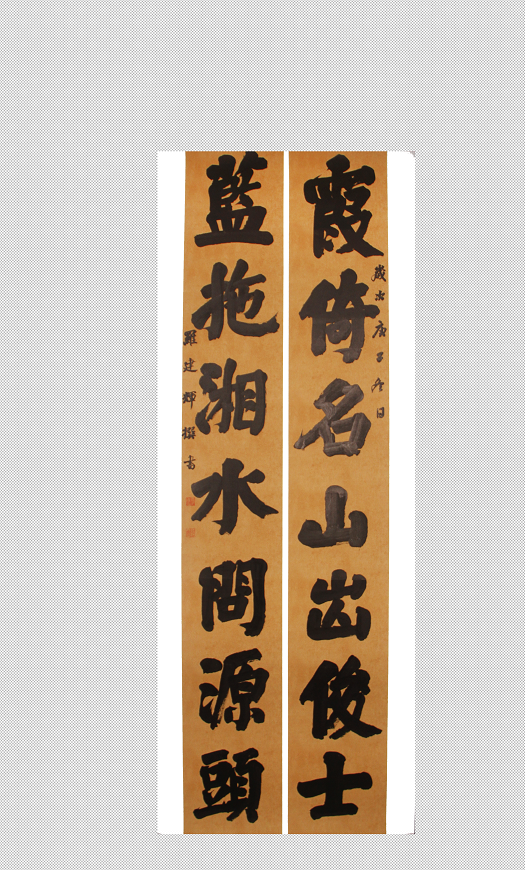 霞倚名山出俊士
歲次庚子冬日
藍拖湘水問源頭
羅建輝撰書